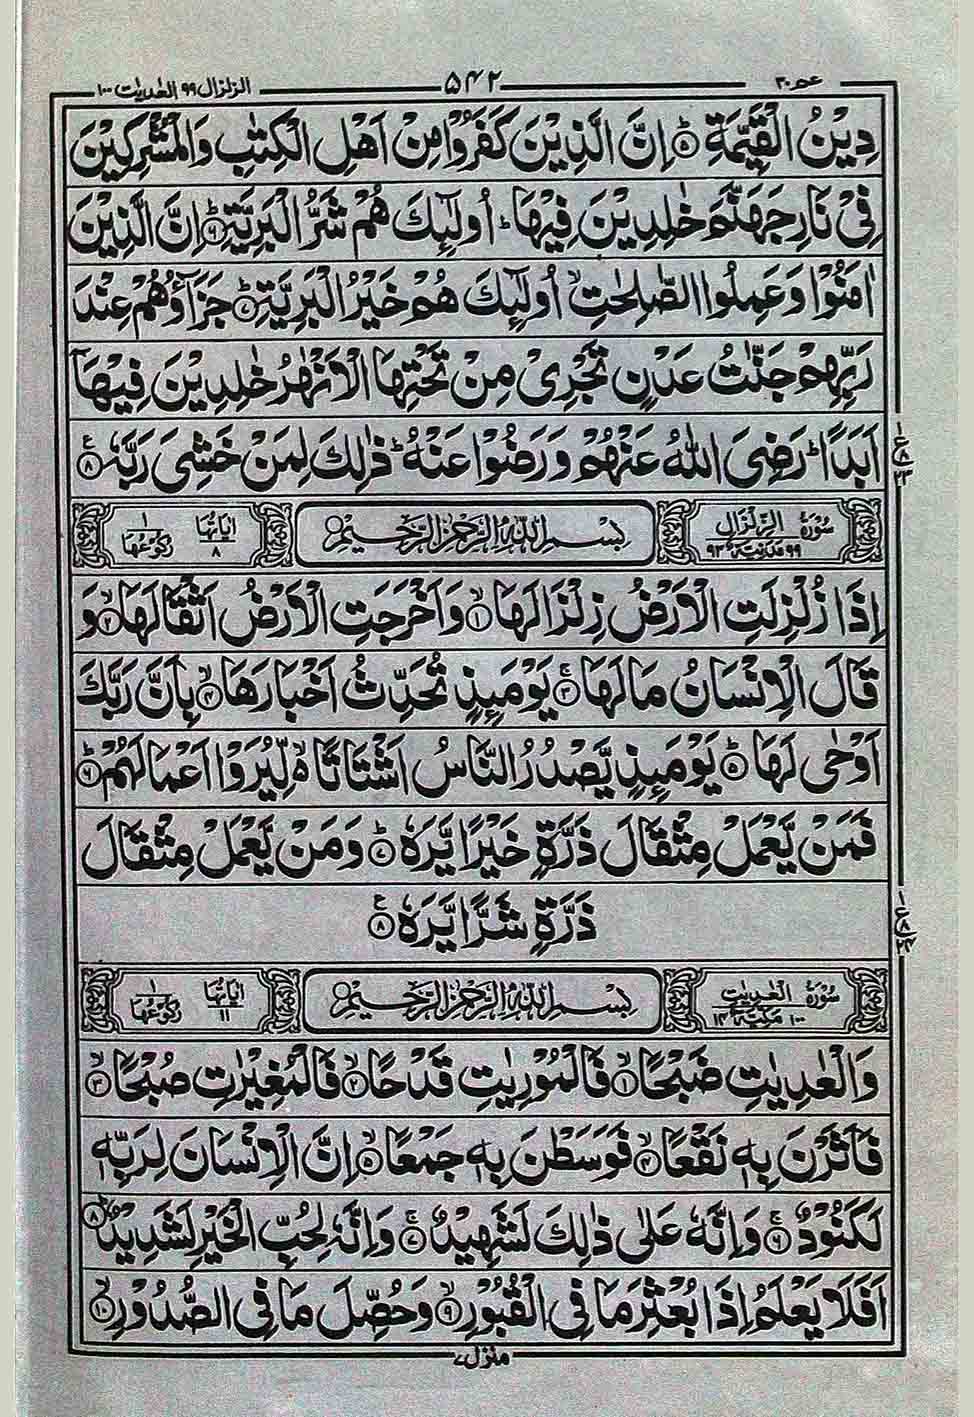 عم ٣٠
٥٤٢
الزلزال ٩٩ العٰديٰت ١٠٠
دِيْنُ الْقَيِّمَةِ ؕ۝٥ اِنَّ الَّذِيْنَ كَفَرُوْا مِنْ اَهْلِ الْكِتٰبِ وَالْمُشْرِكِيْنَ
فِيْ نَارِ جَهَنَّمَ خٰلِدِيْنَ فِيْهَا ؕ اُولٰٓئِكَ هُمْ شَرُّ الْبَرِيَّةِ ؕ۝٦ اِنَّ الَّذِيْنَ
اٰمَنُوْا وَعَمِلُوا الصّٰلِحٰتِ ۙ اُولٰٓئِكَ هُمْ خَيْرُ الْبَرِيَّةِ ؕ۝٧ جَزَآؤُهُمْ عِنْدَ
رَبِّهِمْ جَنّٰتُ عَدْنٍ تَجْرِيْ مِنْ تَحْتِهَا الْاَنْهٰرُ خٰلِدِيْنَ فِيْهَآ
اَبَدًا ؕ رَضِيَ اللّٰهُ عَنْهُمْ وَرَضُوْا عَنْهُ ؕ ذٰلِكَ لِمَنْ خَشِيَ رَبَّهٗ ۝٨
١ ع ٨ ٢٣
سُوْرَةُ الزِّلْزَالِ ٩٩ مدنية ٩٣
بِسْمِ اللّٰهِ الرَّحْمٰنِ الرَّحِيْمِ
اٰيَاتُهَا ٨
رُكُوْعُهَا ١
اِذَا زُلْزِلَتِ الْاَرْضُ زِلْزَالَهَا ۙ۝١ وَاَخْرَجَتِ الْاَرْضُ اَثْقَالَهَا ۙ۝٢ وَ
قَالَ الْاِنْسَانُ مَا لَهَا ۚ۝٣ يَوْمَئِذٍ تُحَدِّثُ اَخْبَارَهَا ۙ۝٤ بِاَنَّ رَبَّكَ
اَوْحٰى لَهَا ؕ۝٥ يَوْمَئِذٍ يَّصْدُرُ النَّاسُ اَشْتَاتًا ۙ لِّيُرَوْا اَعْمَالَهُمْ ؕ۝٦
فَمَنْ يَّعْمَلْ مِثْقَالَ ذَرَّةٍ خَيْرًا يَّرَهٗ ؕ۝٧ وَمَنْ يَّعْمَلْ مِثْقَالَ
ذَرَّةٍ شَرًّا يَّرَهٗ ۝٨
١ ع ٨ ٢٤
سُوْرَةُ الْعٰدِيٰتِ ١٠٠ مكية ١٤
بِسْمِ اللّٰهِ الرَّحْمٰنِ الرَّحِيْمِ
اٰيَاتُهَا ١١
رُكُوْعُهَا ١
وَالْعٰدِيٰتِ ضَبْحًا ۙ۝١ فَالْمُوْرِيٰتِ قَدْحًا ۙ۝٢ فَالْمُغِيْرٰتِ صُبْحًا ۙ۝٣
فَاَثَرْنَ بِهٖ نَقْعًا ۙ۝٤ فَوَسَطْنَ بِهٖ جَمْعًا ۙ۝٥ اِنَّ الْاِنْسَانَ لِرَبِّهٖ
لَكَنُوْدٌ ۚ۝٦ وَاِنَّهٗ عَلٰى ذٰلِكَ لَشَهِيْدٌ ۚ۝٧ وَاِنَّهٗ لِحُبِّ الْخَيْرِ لَشَدِيْدٌ ؕ۝٨
اَفَلَا يَعْلَمُ اِذَا بُعْثِرَ مَا فِي الْقُبُوْرِ ۙ۝٩ وَحُصِّلَ مَا فِي الصُّدُوْرِ ۙ۝١٠
منزل ٧